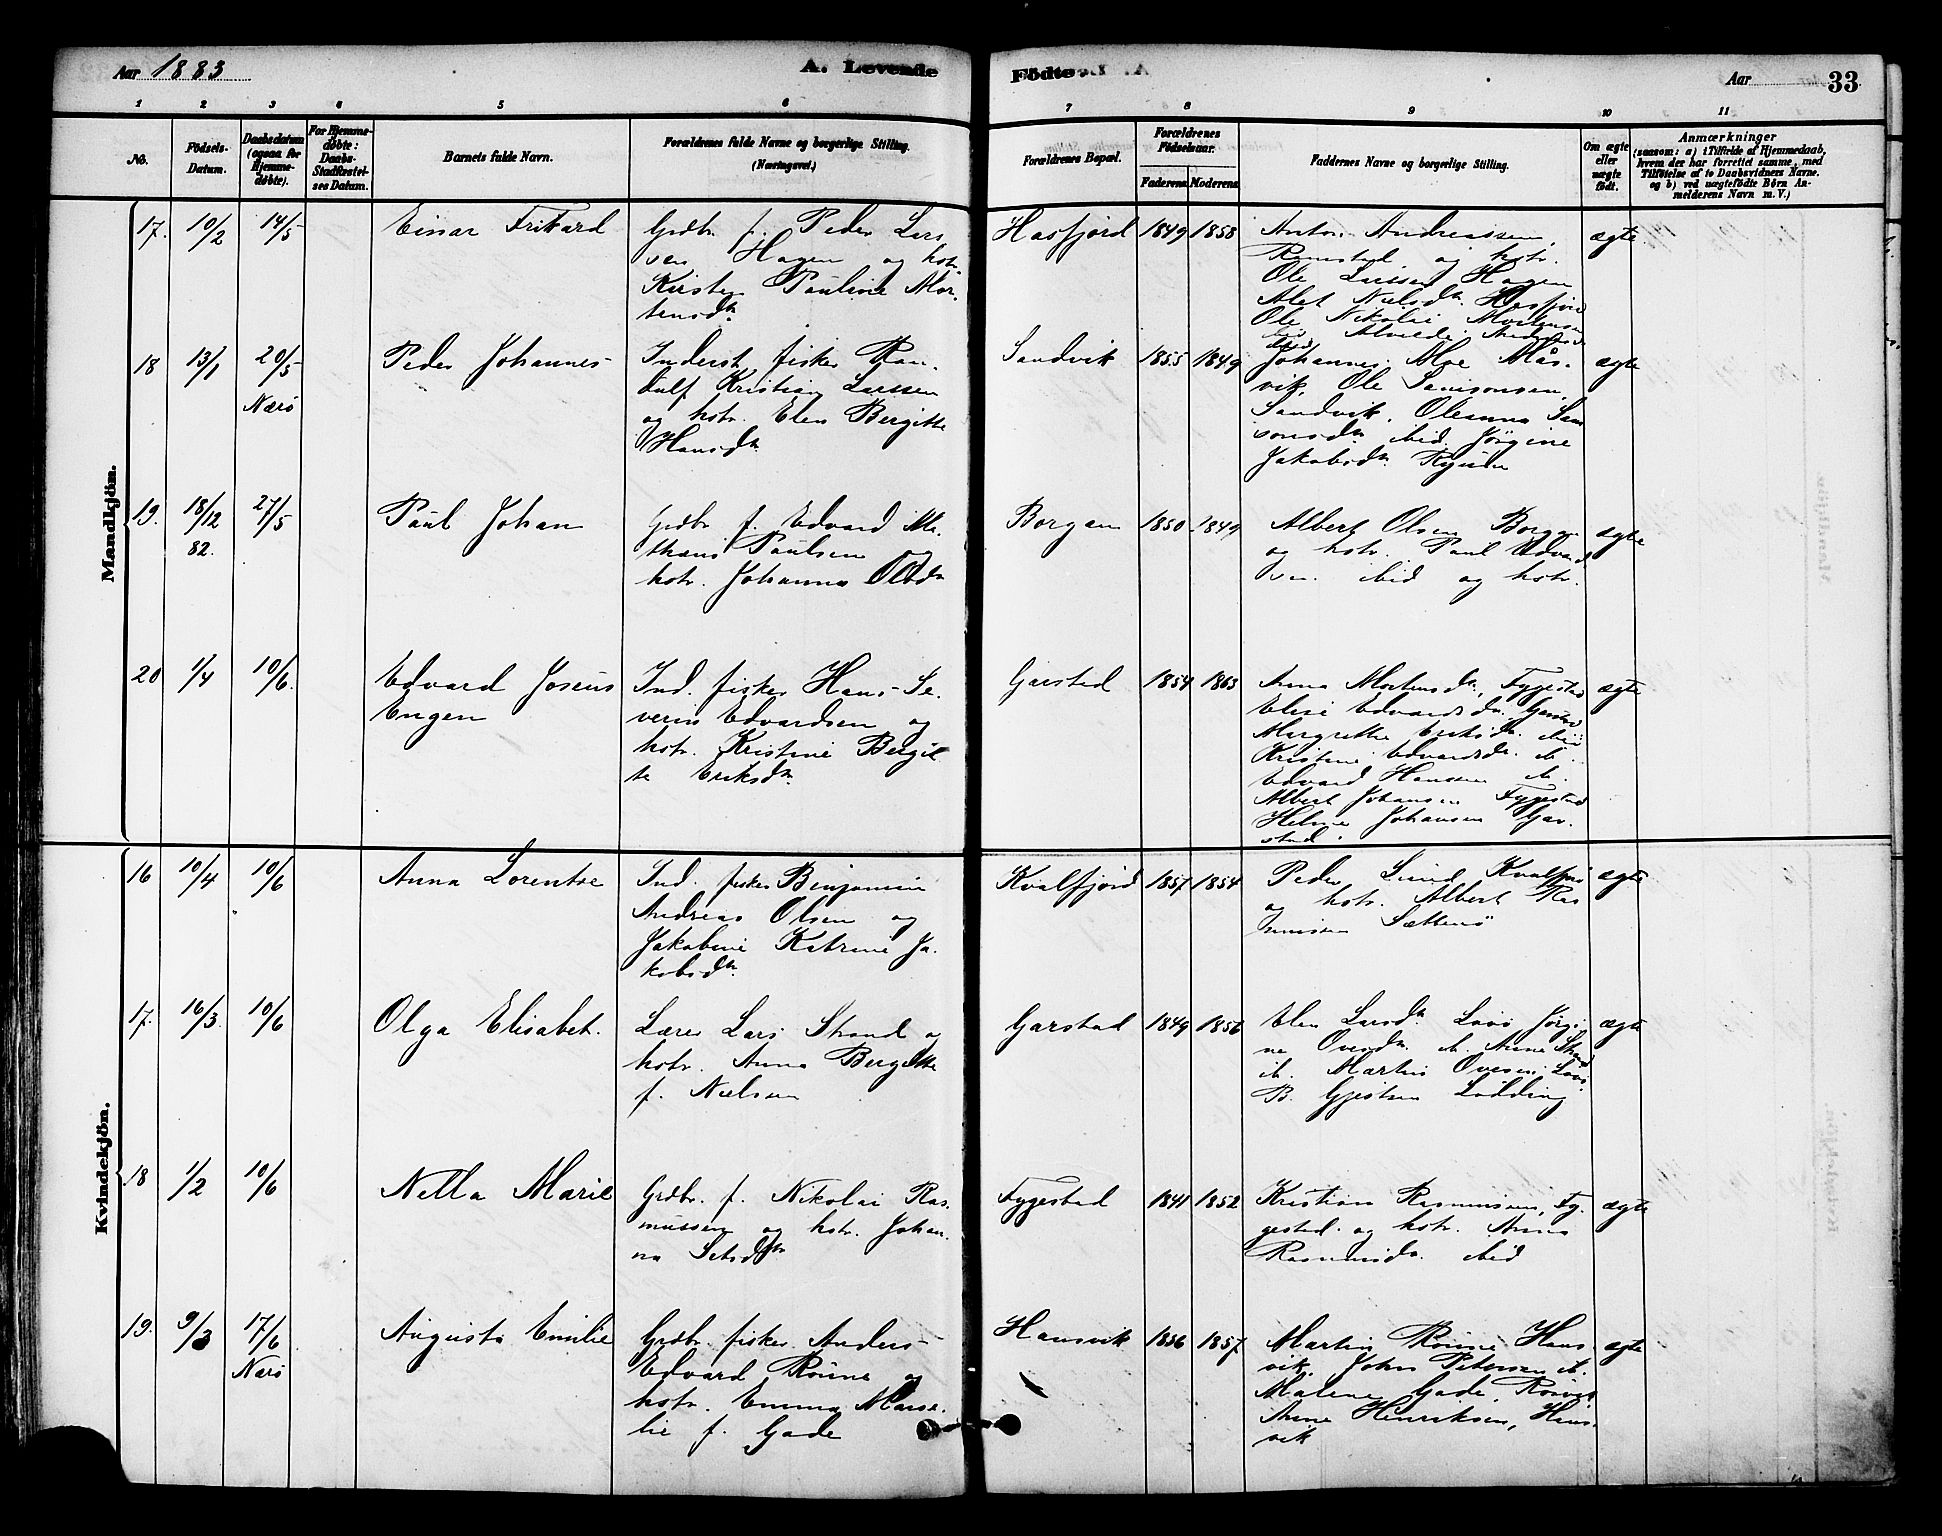 Aar 1883
A. Levende
Födte
Aar
33
1 2 3 4 5 6 7 8 9 10 11
No.
Födsels-
Datum.
Daabsdatum
(ogsaa for
Hjemme-
døbte).
For Hjemme-
døbte:
Daabs-
Stadfæstel-
ses Datum.
Barnets fulde Navn.
Forældrenes fulde Navne og borgerlige Stilling.
(Næringsvei.)
Forældrenes Bopæl.
Forældrenes
Födselsaar.
Faderens Moderens
Faddernes Navne og borgerlige Stilling.
Om ægte
eller
uægte
født.
Anmærkninger
(saasom: a) i Tilfælde af Hjemmedaab,
hvem der har forrettet samme, med
Tilföielse af to Daabsvidners Navne.
og b) ved uægtefödte Börn An-
melderens Navn m. V.)
Mandkjön.
17. 10/2 14/5
Einar Frikard
Grdbr. f. Peder Lars
sen Hagen og hstr.
Kirsten Pauline Mor-
tensdtr.
Hasfjord 1849 1858
Anton Andreassen,
Ramstad og hstr.
Ole Larssen Hagen
Alet Nielsdtr. Hasfjord
Ole Nikolai Mortensen
ægte
18 13/1 20/5
Nærö
Peder Johannes
Inderst fisker Ran-
dulf Kristian Larssen
og hstr. Elen Bergitte
Hansdtr.
Sandvik 1855 1849
Johannes Moe Mårs-
vik, Ole Samsonsen,
Sandvik, Oleanna Sam
sonsdtr. ibid. Jörgine
Jakobsdtr.
ægte
19. 18/12 27/5
82.
Paul Johan
Grdbr. f. Edvard Ma-
thæus Paulsen og
hstr. Johanna Olsdtr
Borgan 1850 1849
Albert Olsen Borgan
og hstr. Paul Edvard
sen ibid og hstr.
ægte
20 1/4 10/6.
Edvard Joseus
Engen
Ind. fisker Hans Se-
verin Edvardsen og
hstr. Kristine Bergit-
te Eriksdtr.
Garstad 1854 1863
Anna Mortensdtr. Fyggestad
Elise Edvardsdtr. Garstad
Margrethe Eriksdtr. ibid
Kristine Edvardsdtr. ib.
Edvard Hansen ib.
Albert Johansen Fyggestad
Helmer Johansen Gar-
stad.
ægte
Kvindekjön.
16 10/4 10/6
Anna Lorentse
Ind. fisker Benjamin
Andreas Olsen og
Jakobine Katrine Ja-
kobsdtr.
Kvalfjord 1857 1854
Peder Lund Kvalfjord
og hstr. Albert Ras
mussen Sættenö
ægte
17. 16/3. 10/6
Olga Elisabet.
Lærer Lars Strand og
hstr. Anna Bergitte
f. Nielsen
Garstad 1849 1856
Elen Larsdtr. Lovö Jörgi-
ne Ovesdtr. ib. Anne Strand
ib. Martin Ovesen Lovö
B. Gjestsen Lödding
ægte
18 1/2 10/6
Nella Marie
Grdbr. f. Nikolai Ras-
mussen og hstr. Johan-
na Setsdtr
Fyggestad 1841 1852
Kristian Rasmussen, Fy-
gestad og hstr. Anna
Rasmusdtr. ibid
ægte
19. 9/3 17/6
Nærö
Augusta Emilie
Grdbr. fisker Anders
Edvard Rönne og
hstr. Emma Marse-
lie f. Gade
Hansvik 1856 1857
Martin Rönne Hans-
vik, John Petersen ib.
Malene Gade, Rörvig
Anne Henriksen, Hans-
vik
ægte